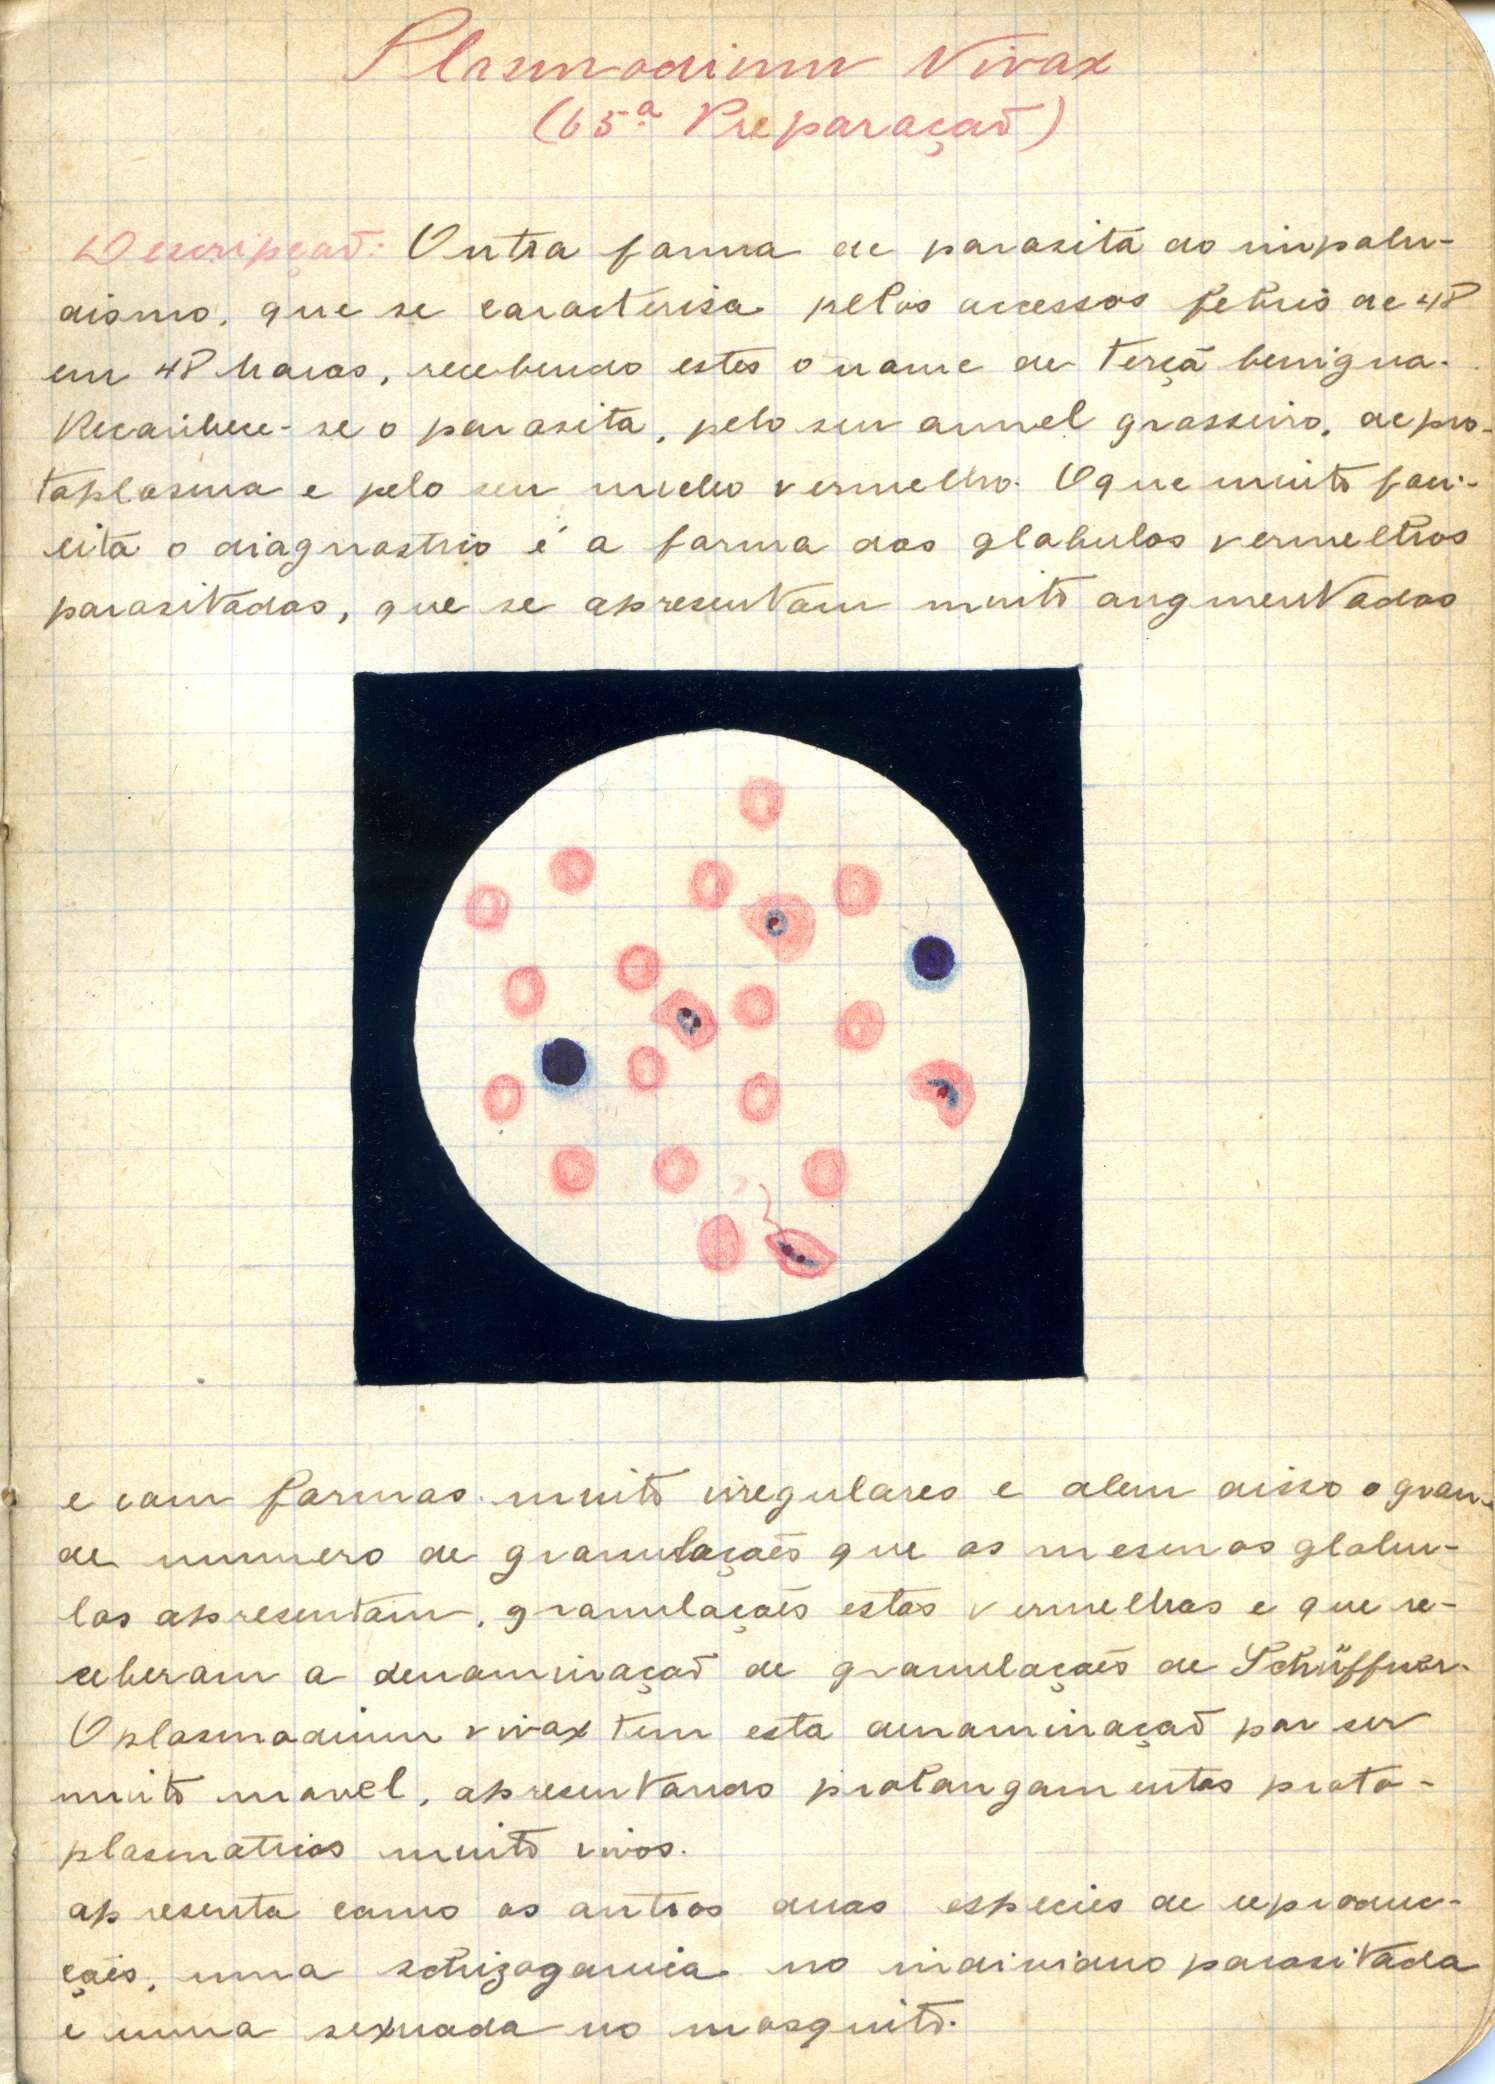 Plasmodium Vivax
(65ª Preparação)
Descripção: Outra forma de parasita do impalu-
dismo, que se caracterisa pelos accessos febris de 48
em 48 horas, recebendo estes o nome de terçã benigna.
Reconhece-se o parasita, pelo seu annel grosseiro, de pro-
toplasma e pelo seu nucleo vermelho. O que muito faci-
lita o diagnostico é a forma dos globulos vermelhos
parasitados, que se apresentam muito augmentados
e com formas muito irregulares e alem disso o gran-
de numero de granulações que os mesmos globu-
los apresentam, granulações estas vermelhas e que re-
ceberam a denominação de granulações de Schüffner.
O plasmodium vivax tem esta denominação por ser
muito movel, apresentando prolongamentos proto-
plasmaticos muito vivos.
apresenta como os outros duas especies de reproduc-
ções, uma schizogonica no individuo parasitado
e uma sexuada no mosquito.